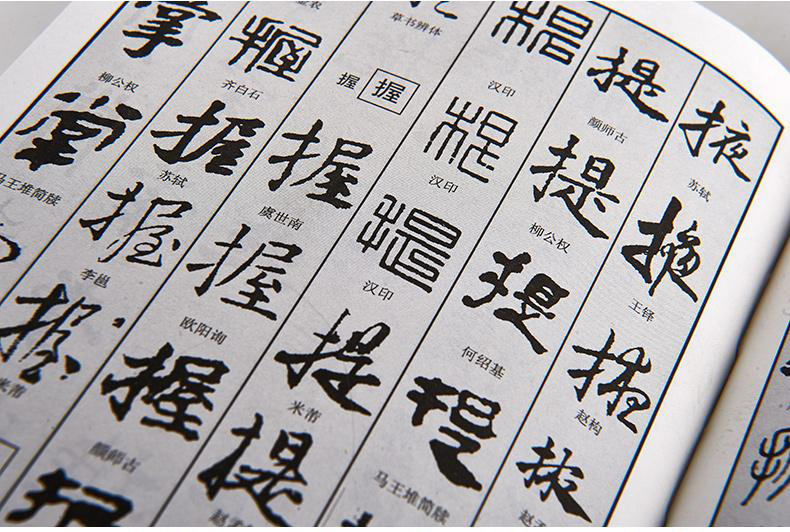 掖
苏轼
掖
王铎
掖
赵构
掖
提
颜师古
提
柳公权
提
何绍基
提
马王堆简牍
提
汉印
提
汉印
提
汉印
提
米芾
提
草书辨体
握 握
握
虞世南
握
欧阳询
握
颜师古
握
齐白石
握
苏轼
握
李邕
握
米芾
掌
柳公权
掌
马王堆简牍